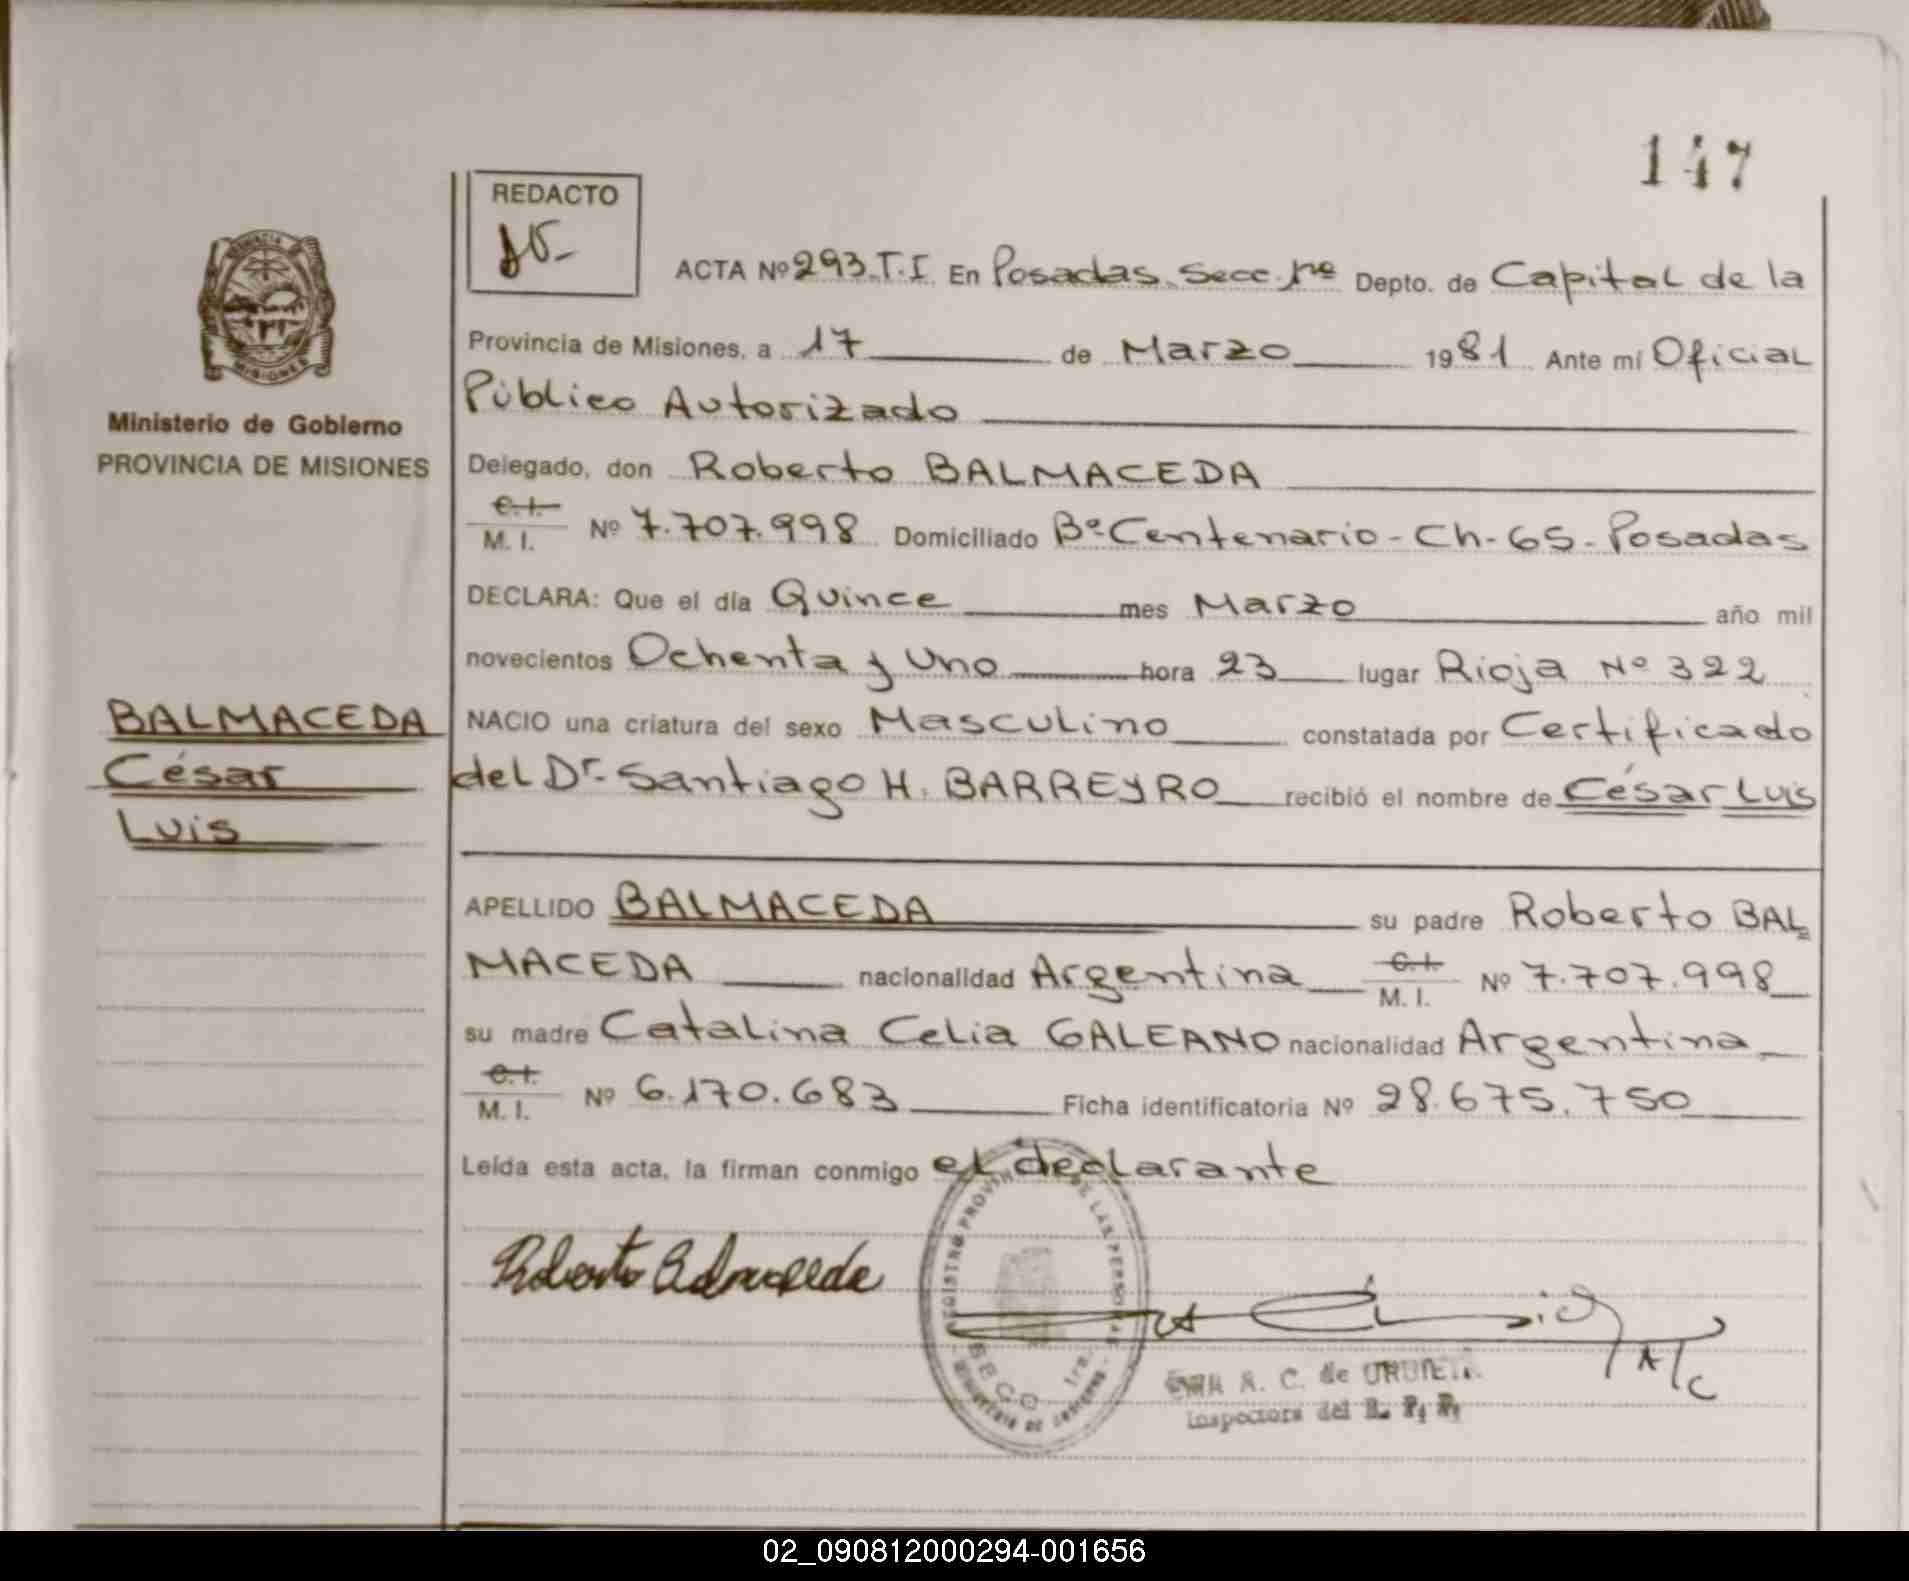 147
REDACTO
ACTA Nº 293.T.I. En Posadas, Secc. 1ra Depto. de Capital de la
Provincia de Misiones, a 17 de Marzo 1981 Ante mí Oficial
Público Autorizado
Ministerio de Gobierno
PROVINCIA DE MISIONES
Delegado, don Roberto BALMACEDA
C.I.
M. I. Nº 7.707.998 Domiciliado Bº Centenario - Ch - 65 - Posadas
DECLARA: Que el día Quince mes Marzo año mil
novecientos Ochenta y Uno hora 23 lugar Rioja Nº 322
BALMACEDA
César
Luis
NACIO una criatura del sexo Masculino constatada por Certificado
del Dr. Santiago H. BARREYRO recibió el nombre de César Luis
APELLIDO BALMACEDA su padre Roberto BAL
MACEDA nacionalidad Argentina C.I. M. I. Nº 7.707.998
su madre Catalina Celia GALEANO nacionalidad Argentina
C.I.
M. I. Nº 6.170.683 Ficha identificatoria Nº 28.675.750
Leída esta acta, la firman conmigo el declarante
Roberto Balmaceda
REGISTRO PROVINCIAL DE LAS PERSONAS
SECC. 1ra.
A. C. de
Inspectora del R. P. P.
02_090812000294-001656